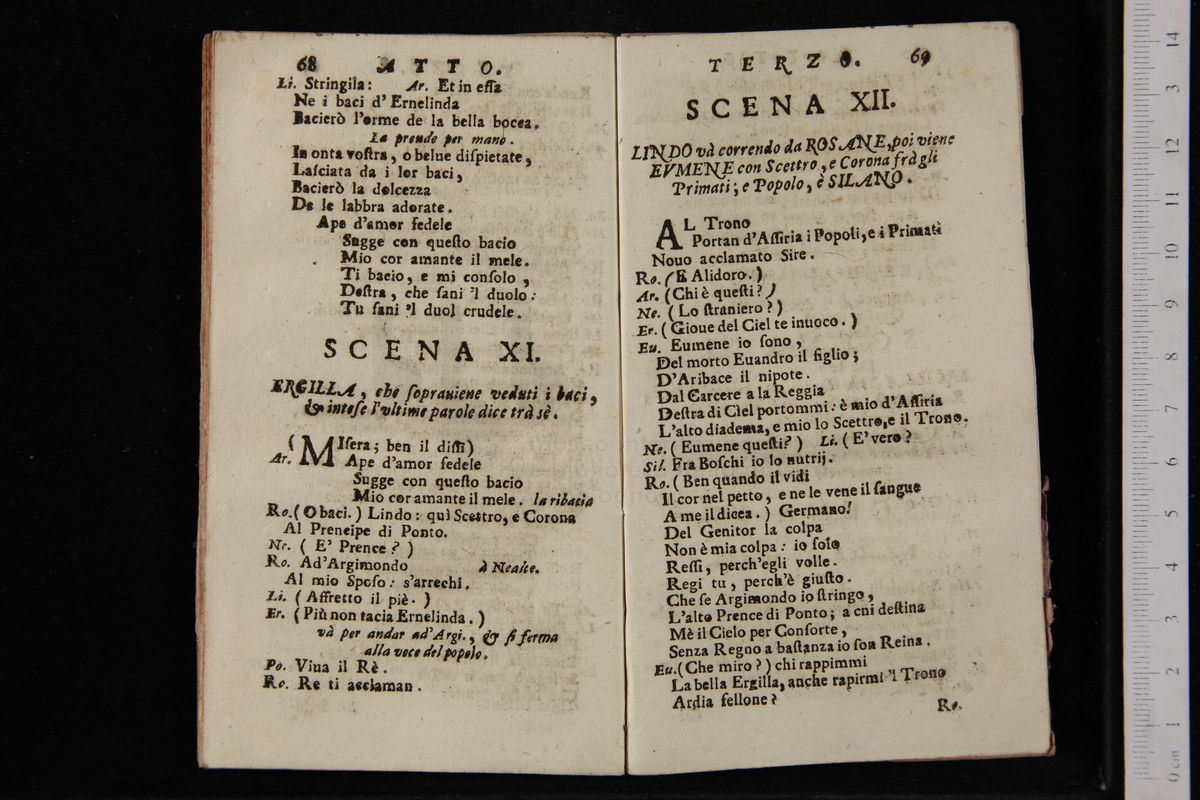 68 ATTO.
Li. Stringila: Ar. Et in eſſa
Ne i baci d' Ernelinda
Bacierò l'orme de la bella bocca.
La prende per mano.
In onta voſtra, o belue diſpietate,
Laſciata da i lor baci,
Bacierò la dolcezza
De le labbra adorate.
Ape d'amor fedele
Sugge con queſto bacio
Mio cor amante il mele.
Ti bacio, e mi conſolo,
Deſtra, che ſani 'l duolo:
Tu ſani 'l duol crudele.
SCENA XI.
ERGILLA, che ſoprauiene veduti i baci,
& inteſe l'vltime parole dice trà sè.
(MIſera; ben il diſſi)
Ar. Ape d'amor fedele
Sugge con queſto bacio
Mio cor amante il mele. la ribacia
Ro. (O baci.) Lindo: quì Scettro, e Corona
Al Prencipe di Ponto.
Ne. (E' Prence?)
Ro. Ad'Argimondo à Nealce.
Al mio Spoſo: s'arrechi.
Li. (Affretto il piè.)
Er. (Più non tacia Ernelinda.)
và per andar ad'Argi., & ſi ferma
alla voce del popolo.
Po. Viua il Rè.
Ro. Re ti acclaman.
TERZO. 69
SCENA XII.
LINDO và correndo da ROSANE, poi viene
EVMENE con Scettro, e Corona frà gli
Primati; e Popolo, è SILANO.
AL Trono
Portan d'Aſſiria i Popoli, e i Primati
Nouo acclamato Sire.
Ro. (E Alidoro.)
Ar. (Chi è queſti?)
Ne. (Lo ſtraniero?)
Er. (Gioue del Ciel te inuoco.)
Eu. Eumene io ſono,
Del morto Euandro il figlio;
D'Aribace il nipote.
Dal Carcere a la Reggia
Deſtra di Ciel portommi: è mio d'Aſſiria
L'alto diadema, e mio lo Scettro, e il Trono.
Ne. (Eumene queſti?) Li. (E' vero?
Sil. Fra Boſchi io lo nutrij.
Ro. (Ben quando il vidi
Il cor nel petto, e ne le vene il ſangue
A me il dicea.) Germano!
Del Genitor la colpa
Non è mia colpa: io ſolo
Reſſi, perch'egli volle.
Regi tu, perch'è giuſto.
Che ſe Argimondo io ſtringo,
L'alto Prence di Ponto; a cni deſtina
Mè il Cielo per Conforte,
Senza Regno a baſtanza io ſon Reina.
Eu. (Che miro?) chi rappimmi
La bella Ergilla, anche rapirmi 'l Trono
Ardia fellone?
Ro.